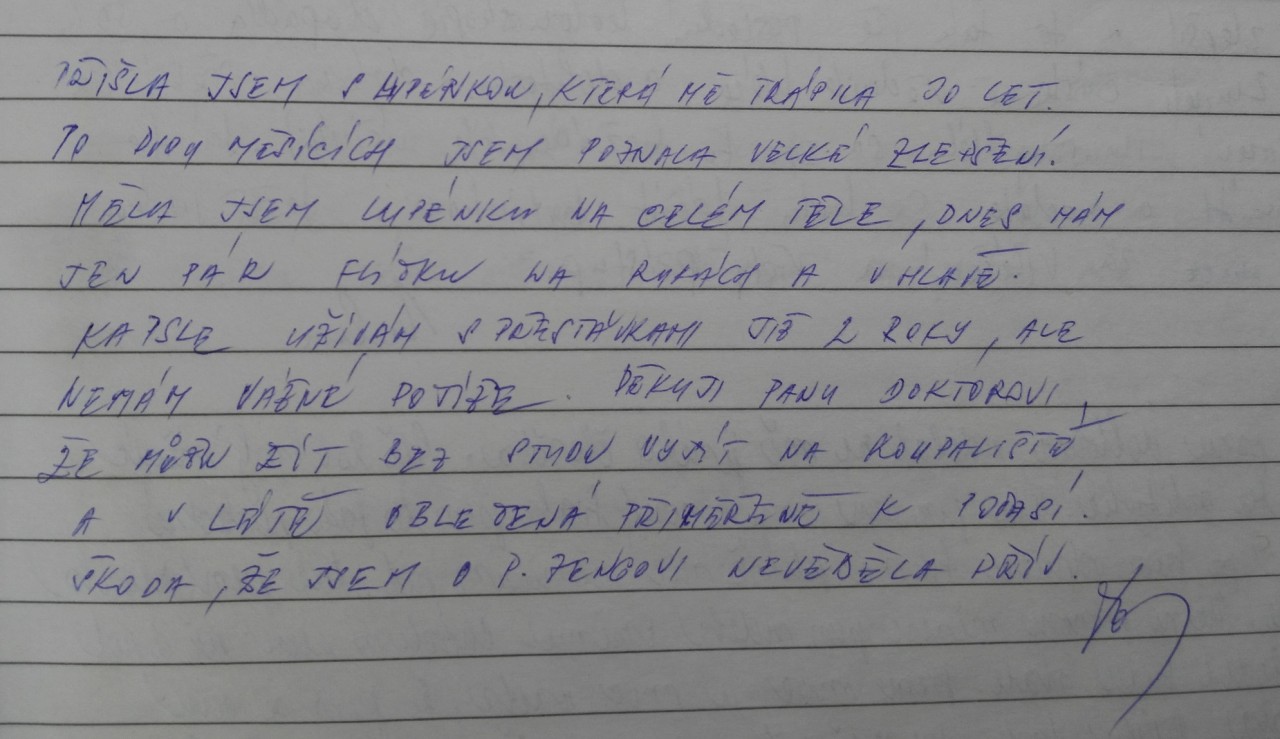 PŘIŠLA JSEM S LUPÉNKOU, KTERÁ MĚ TRÁPILA 30 LET.
PO DVOU MĚSÍCÍCH JSEM POZNALA VELKÉ ZLEPŠENÍ.
MĚLA JSEM LUPÉNKU NA CELÉM TĚLE, DNES MÁM
JEN PÁR FLÍČKŮ NA RUKÁCH A V HLAVĚ.
KAPSLE UŽÍVÁM S PŘESTÁVKAMI JIŽ 2 ROKY, ALE
NEMÁM VÁŽNÉ POTÍŽE. DĚKUJI PANU DOKTOROVI,
ŽE MŮŽU ŽÍT BEZ STUDU VYJÍT NA KOUPALIŠTĚ
A V LÉTĚ OBLEČENÁ PŘIMĚŘENĚ K POČASÍ.
ŠKODA, ŽE JSEM O P. ZENGOVI NEVĚDĚLA DŘÍV.